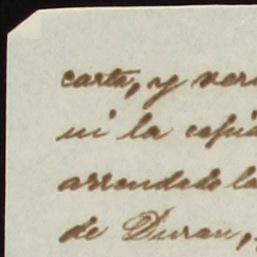 carta, y ver
ni la copia
arrendado la
de Duran,